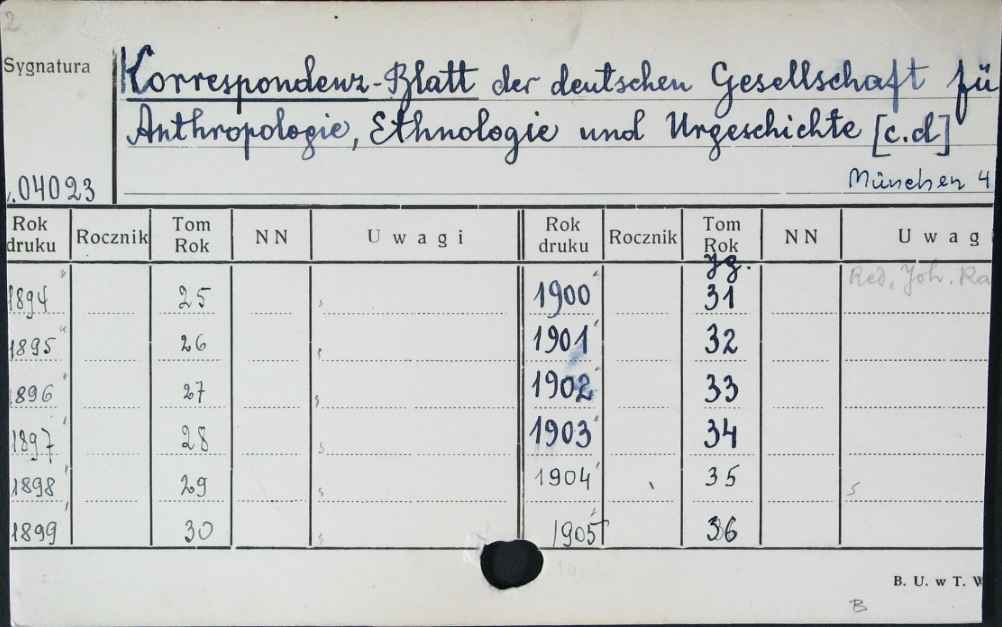 2
Sygnatura
Korrespondenz-Blatt der deutschen Gesellschaft fü
Anthropologie, Ethnologie und Urgeschichte [c.d]
04023
München 4
Rok druku Rocznik Tom Rok NN Uwagi Rok druku Rocznik Tom Rok NN Uwag
Jg. Red. Joh. Ra
1894 25 1900 31
1895 26 1901 32
1896 27 1902 33
1897 28 1903 34
1898 29 1904 35
1899 30 1905 36
B. U. w T. W
B